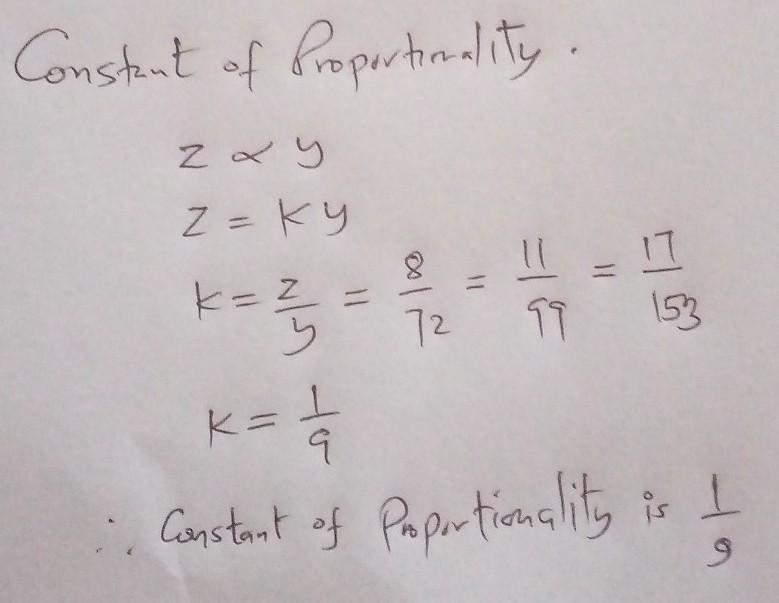 Constant of Proportionality.
z ∝ y
z = ky
k = z/y = 8/72 = 11/99 = 17/153
k = 1/9
∴ Constant of Proportionality is 1/9